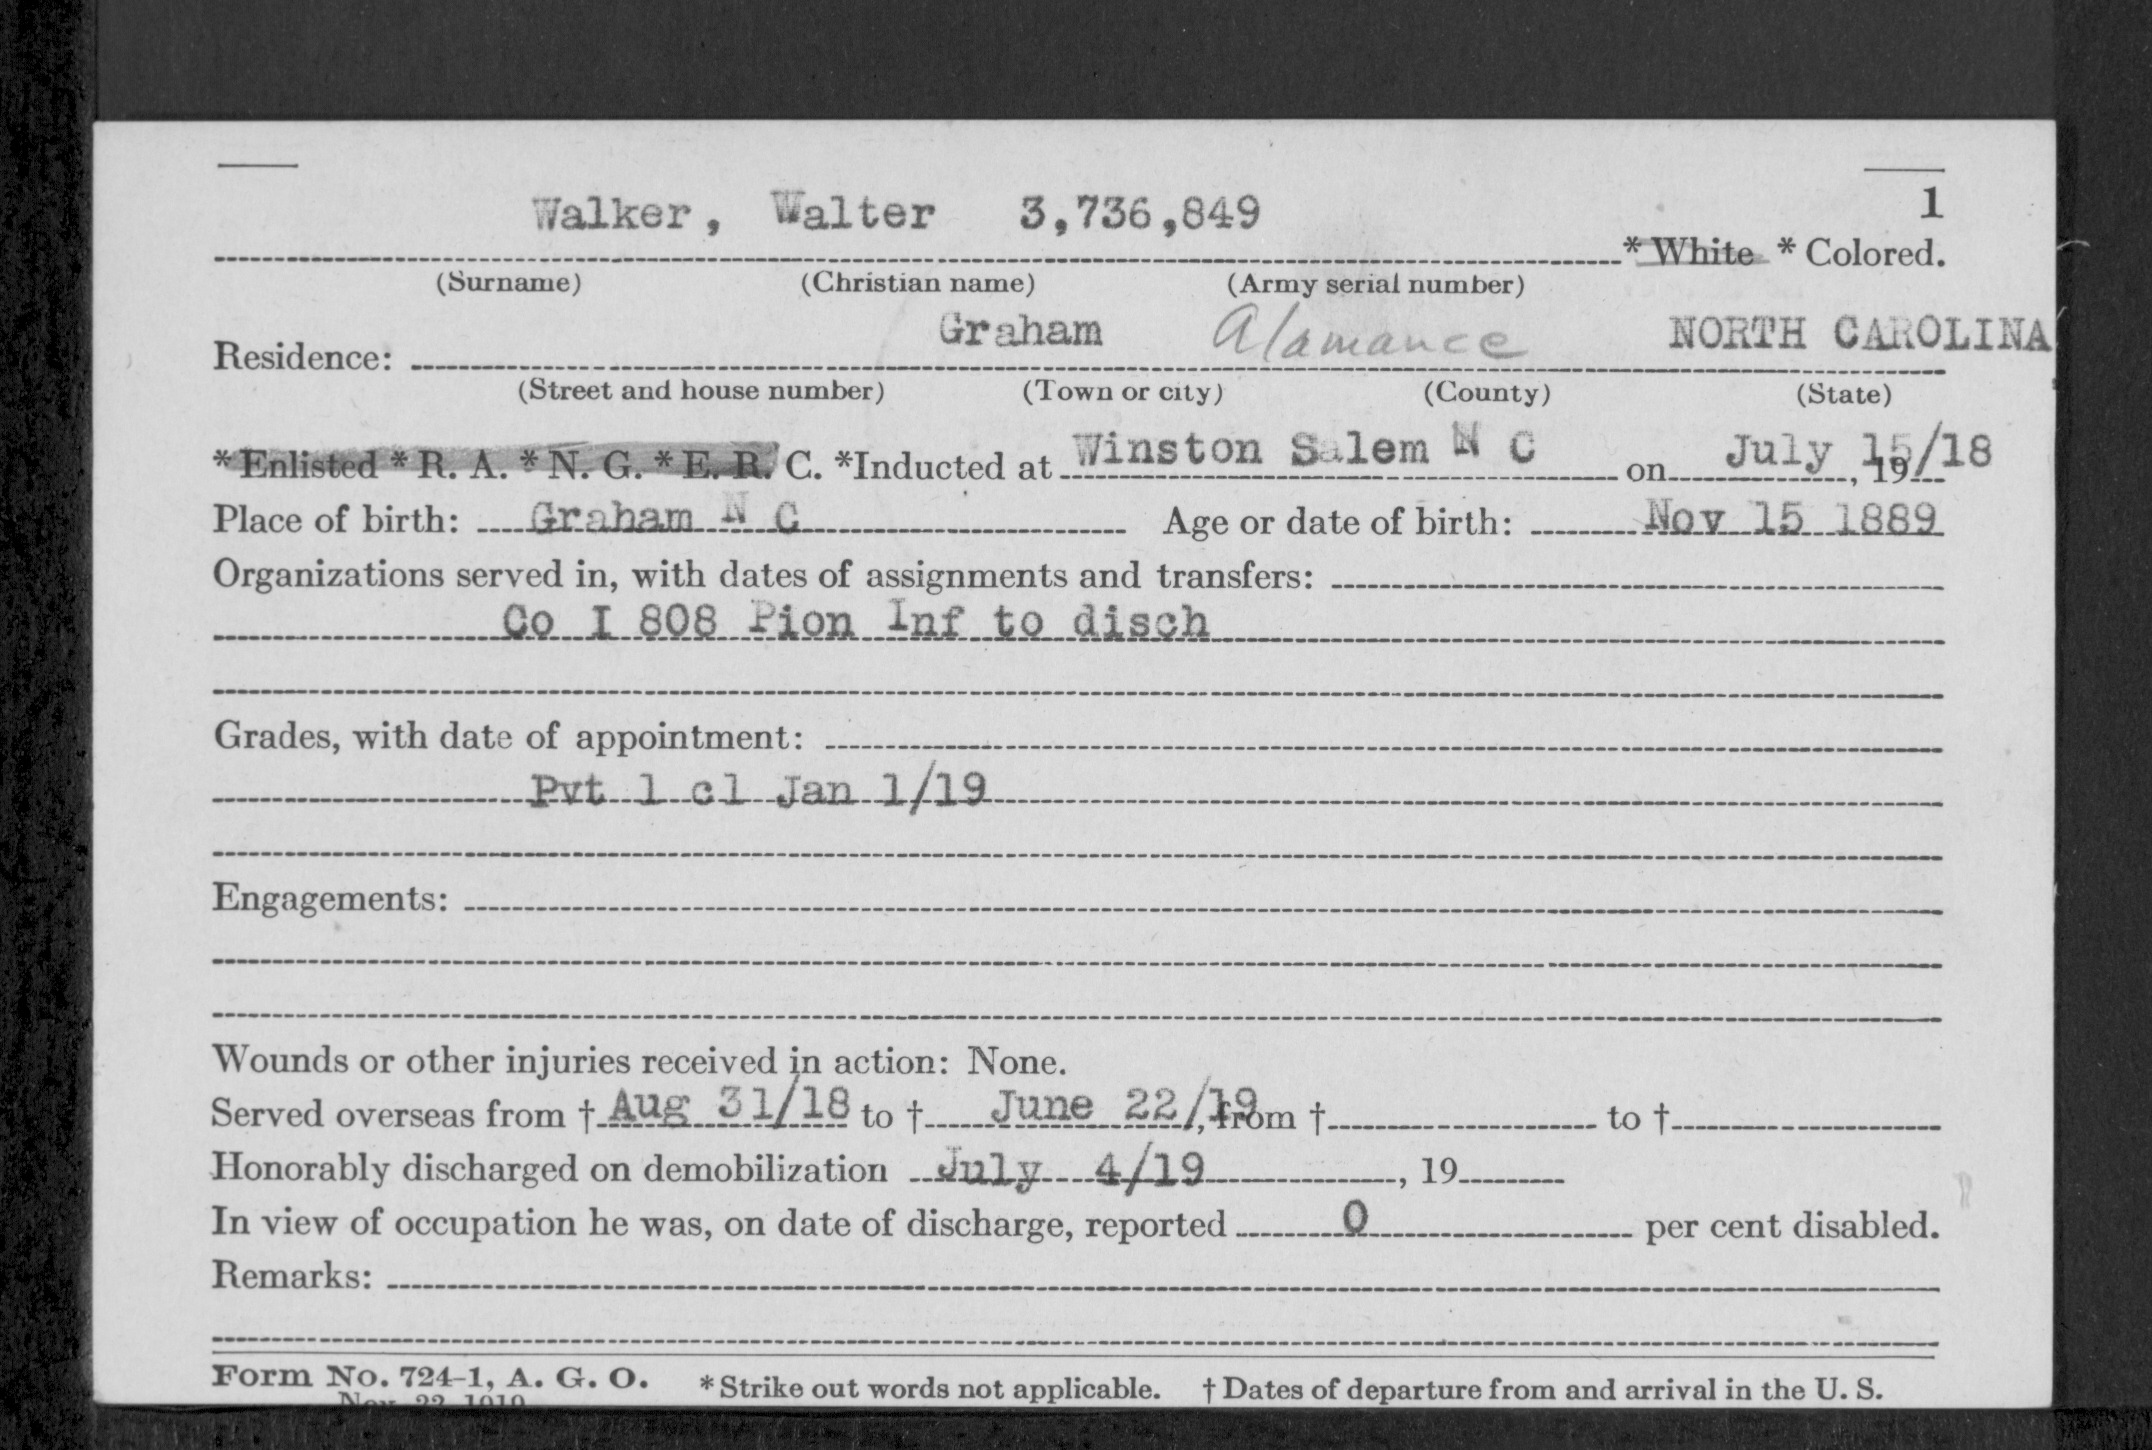 1
Walker, Walter 3,736,849 * White * Colored.
(Surname) (Christian name) (Army serial number)
Residence: Graham Alamance NORTH CAROLINA
(Street and house number) (Town or city) (County) (State)
*Enlisted *R. A. *N. G. *E. R. C. *Inducted at Winston Salem N C on July 15/18, 19
Place of birth: Graham N C Age or date of birth: Nov 15 1889
Organizations served in, with dates of assignments and transfers:
Co I 808 Pion Inf to disch
Grades, with date of appointment:
Pvt 1 cl Jan 1/19
Engagements:
Wounds or other injuries received in action: None.
Served overseas from † Aug 31/18 to † June 22/19, from † to †
Honorably discharged on demobilization July 4/19, 19
In view of occupation he was, on date of discharge, reported 0 per cent disabled.
Remarks:
Form No. 724-1, A. G. O. *Strike out words not applicable. † Dates of departure from and arrival in the U. S.
Nov. 22, 1919